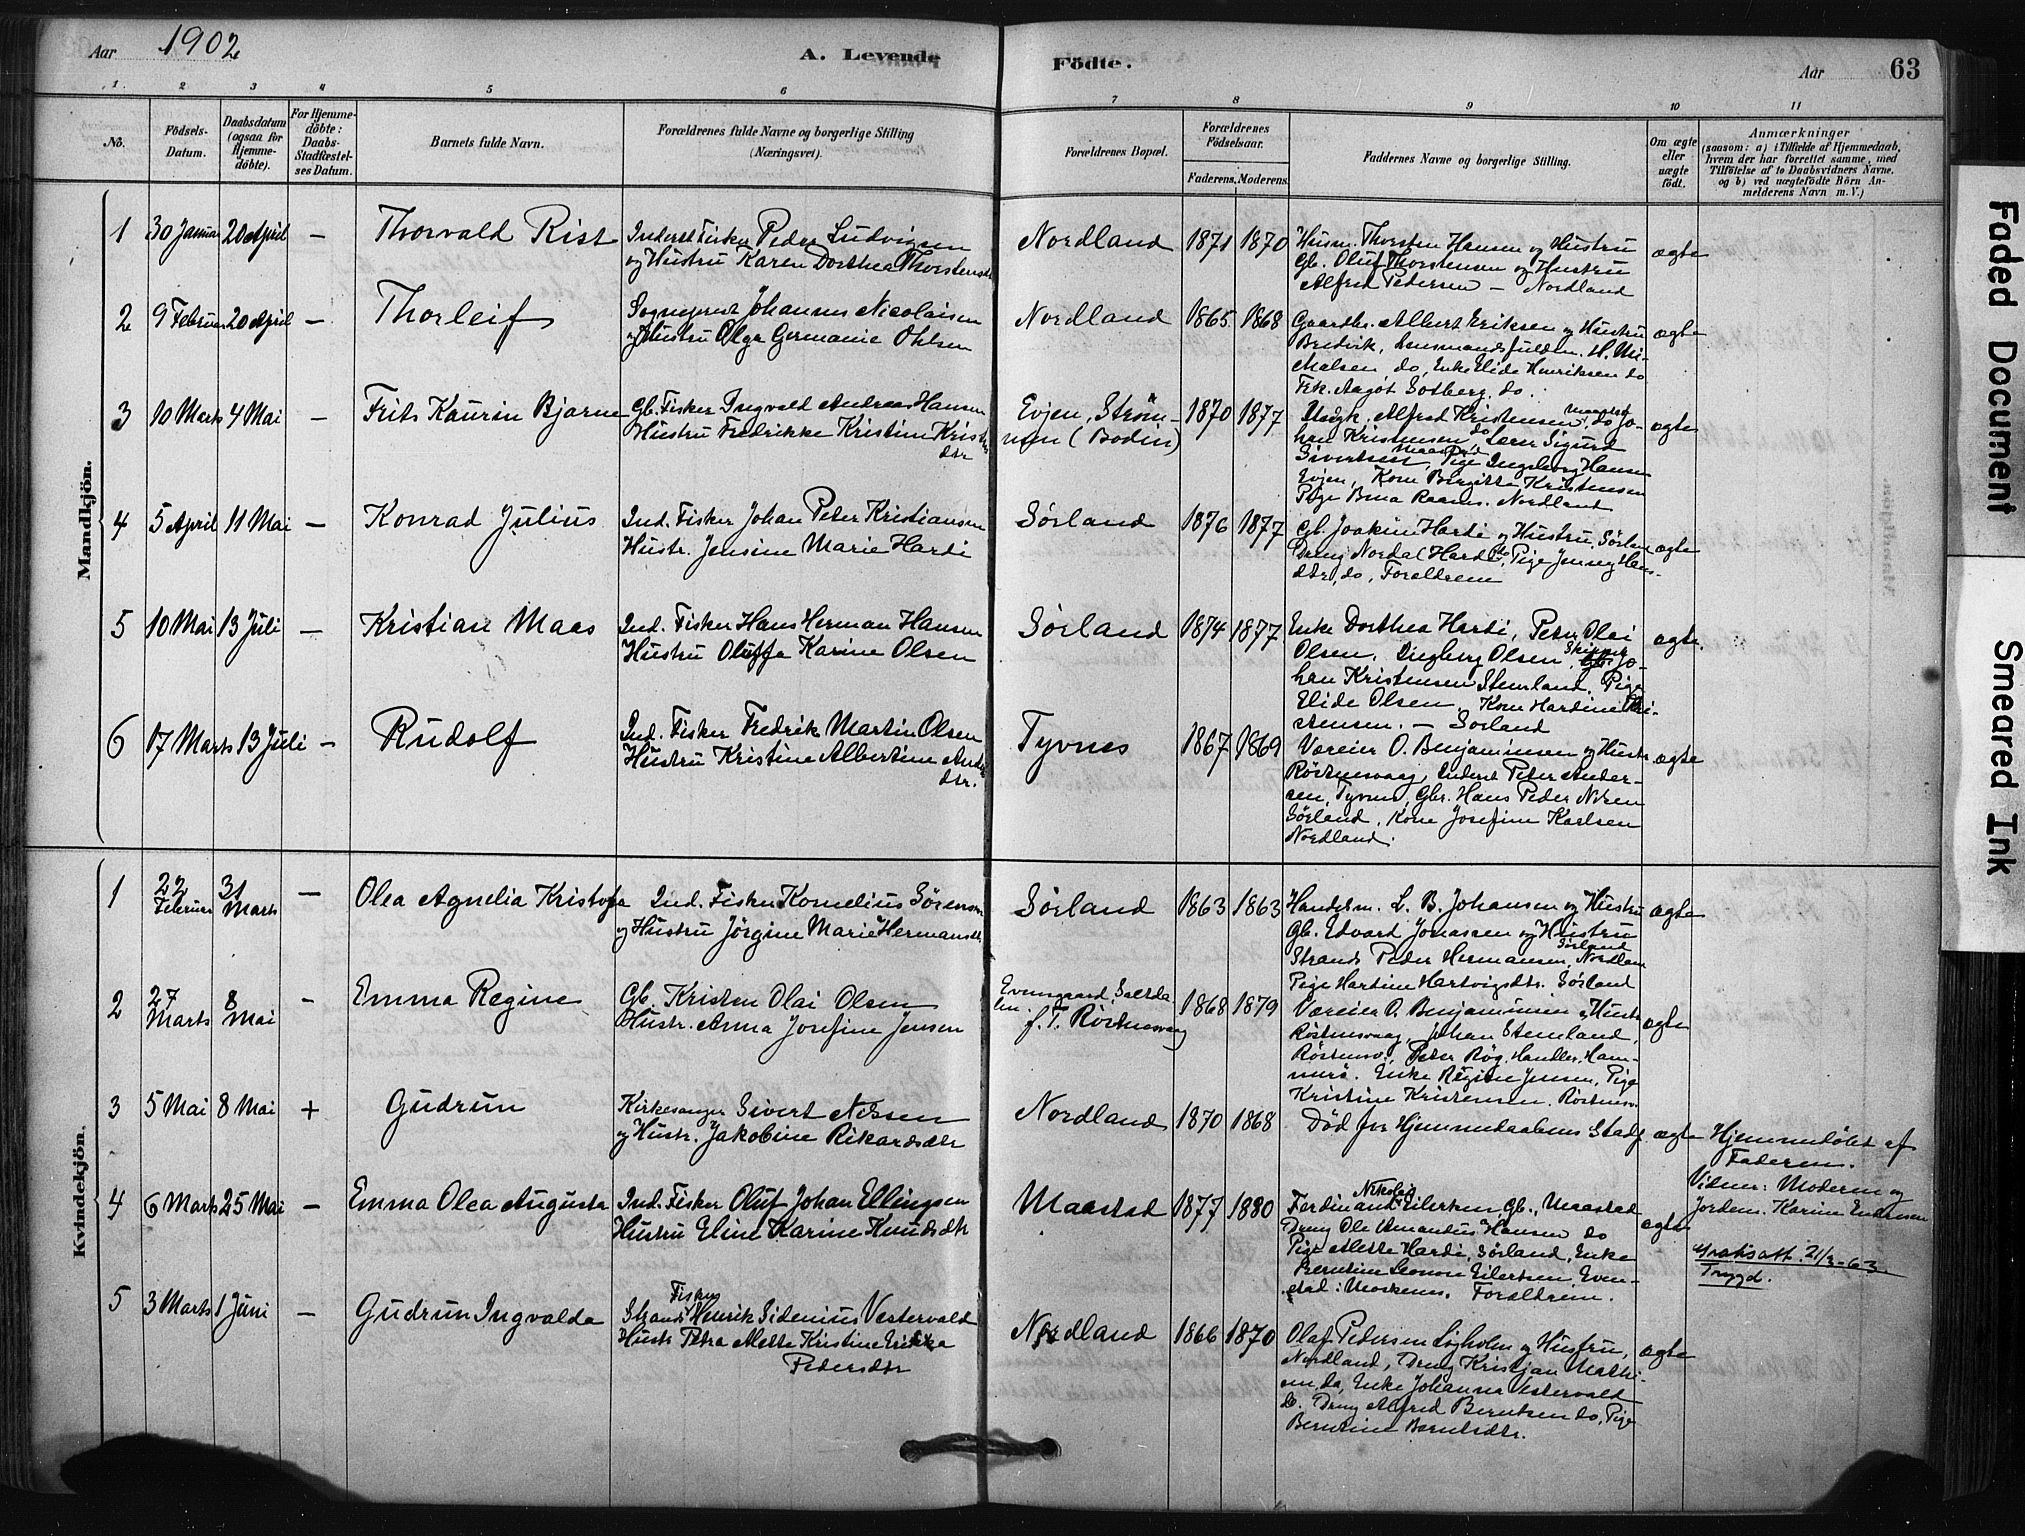 Aar 1902
A. Levende Födte.
Aar 63
1 2 3 4 5 6 7 8 9 10 11
No.
Födsels-Datum.
Daabsdatum (ogsaa for Hjemme-döbte).
For Hjemme-döbte: Daabs-Stadfæstel-ses Datum.
Barnets fulde Navn.
Forældrenes fulde Navne og borgerlige Stilling (Næringsvei).
Forældrenes Bopæl.
Forældrenes Födselsaar.
Faderens. Moderens.
Faddernes Navne og borgerlige Stilling.
Om ægte eller uægte födt.
Anmærkninger
(saasom: a) i Tilfælde af Hjemmedaab,
hvem der har forrettet samme, med
Tilföielse af to Daabsvidners Navne,
og b) ved uægtefödte Börn An-
melderens Navn m. V.)
Mandkjön.
1 30 Januar 20 April – Thorvald Rist
Inderst Fisker Peder Ludvigsen
og Hustru Karen Dorthea Thorstensdtr
Nordland 1871 1870
Husm. Thorsten Hansen og Hustru
Gb. Oluf Thorstensen og Hustru
Alfred Pedersen – Nordland
ægte
2 9 Februar 20 April – Thorleif
Sogneprest Johannes Nicolaisen
og Hustru Olga Germanie Ohlsen
Nordland 1865 1868
Gaardbr. Albert Eriksen og Hustru
Bredvik, Lensmandsfuldm. H. Mi-
kalsen, do, Enke Elide Henriksen do
Frk. Aagot Solberg, do.
ægte
3 10 Marts 4 Mai – Frits Kaurin Bjarne
Gb. Fisker Ingvald Andreas Hansen
Hustru Fredrikke Kristine Krist
dtr
Evjen, Ström-
men (Bodin) 1870 1877
Ungk. Alfred Kristensen, Maastad, do Jo-
han Kristensen do, Lærer Sigurd
Sivertsen Maastad, Pige Ingeborg Hansen
Evjen, Kone Birgitte Kristensen
Pige Bina Raanes. Nordland
ægte
4 5 April 11 Mai – Konrad Julius
Ind. Fisker Johan Peter Kristiansen
Hustr. Jensine Marie Hardi
Sörland 1876 1877
Gb. Joakim Hardi og Hustru, Sörlan
Dreng Nordal Hardi do, Pige Jenny Hans-
dtr, do, Forældrene
ægte
5 10 Mai 13 Juli – Kristian Maas
Ind. Fisker Hans Herman Hansen
Hustru Oluffa Karine Olsen
Sörland 1874 1877
Enke Dorthea Hardi, Peter Olai
Olsen, Ingberg Olsen, Skipper Jo-
han Kristensen Stenland, Pige
Elide Olsen, Kone Hardine Kri-
stensen. – Sörland
ægte.
6 17 Marts 13 Juli – Rudolf
Ind. Fisker Fredrik Martin Olsen
Hustru Kristine Albertine Anders
dtr.
Tyvnes 1867 1869
Væreier O. Benjaminsen og Hustr
Röstnesvaag, Inderst Peter Ander-
sen, Tyvnes, Gbr. Hans Peder Nilsen
Sörland, Kone Josefine Karlsen
Nordland.
ægte
Kvindekjön.
1 22 Februar 31 Marts – Olea Agnelia Kristofa
Ind. Fisker Kornelius Sörensen
og Hustru Jörgine Marie Hermansdtr
Sörland 1863 1863
Handelsm. L. B. Johansen og Hustru
Gb. Edvard Jonassen og Hustru
Sörland
Strands. Peder Hermansen, Nordlan
Pige Hartine Hartvigsdtr. Sörland
ægte
2 27 Marts 8 Mai – Emma Regine
Gb. Kristen Olai Olsen
Hustr. Anna Josefine Jensen
Evensgaard, Saltda-
len. f. T. Röstnesvaag 1868 1879
Væreier O. Benjaminsen og Hustr
Röstnesvaag, Johan Stenland,
Röstnesv., Peter Rög, Handler, Ham-
merö. Enke Regine Jensen, Pige
Kristine Kristensen. Röstnesv.
ægte
3 5 Mai 8 Mai + Gudrun
Kirkesanger Sivert Nilssen
og Hustr. Jakobine Rikardsdtr
Nordland 1870 1868
Död för Hjemmedaabens Stadf.
ægte
Hjemmedöbt af
Faderen.
Vidner: Moderen og
Jordem. Karine Endresen
4 6 Marts 25 Mai – Emma Olea Augusta
Ind. Fisker Oluf Johan Ellingsen
Hustru Eline Karine Knudsdtr
Maastad 1877 1880
Ferdinand Nikolai Eilertsen Gb., Maastad
Dreng Ole Amandus Hansen do
Pige Mette Hardi, Sörland, Enke
Berntine Leonore Eilertsen, Even-
stad i Moskenes. Forældrene.
ægte
Gratisatt. 21/3-63
Trygd.
5 3 Marts 1 Juni – Gudrun Ingvalda
Fisker
Strands. Henrik Sidenius Vestervald
Hustr Petra Mette Kristine Erikka
Pedersdtr
Nordland 1866 1870
Olaf Pedersen Ligholm og Hustru,
Nordland, Dreng Kristjan Mathi-
sen, do, Enke Johanna Vestervald
do. Dreng Alfred Berntsen do, Pige
Berntine Berntsdtr.
ægte
Faded Document
Smeared Ink